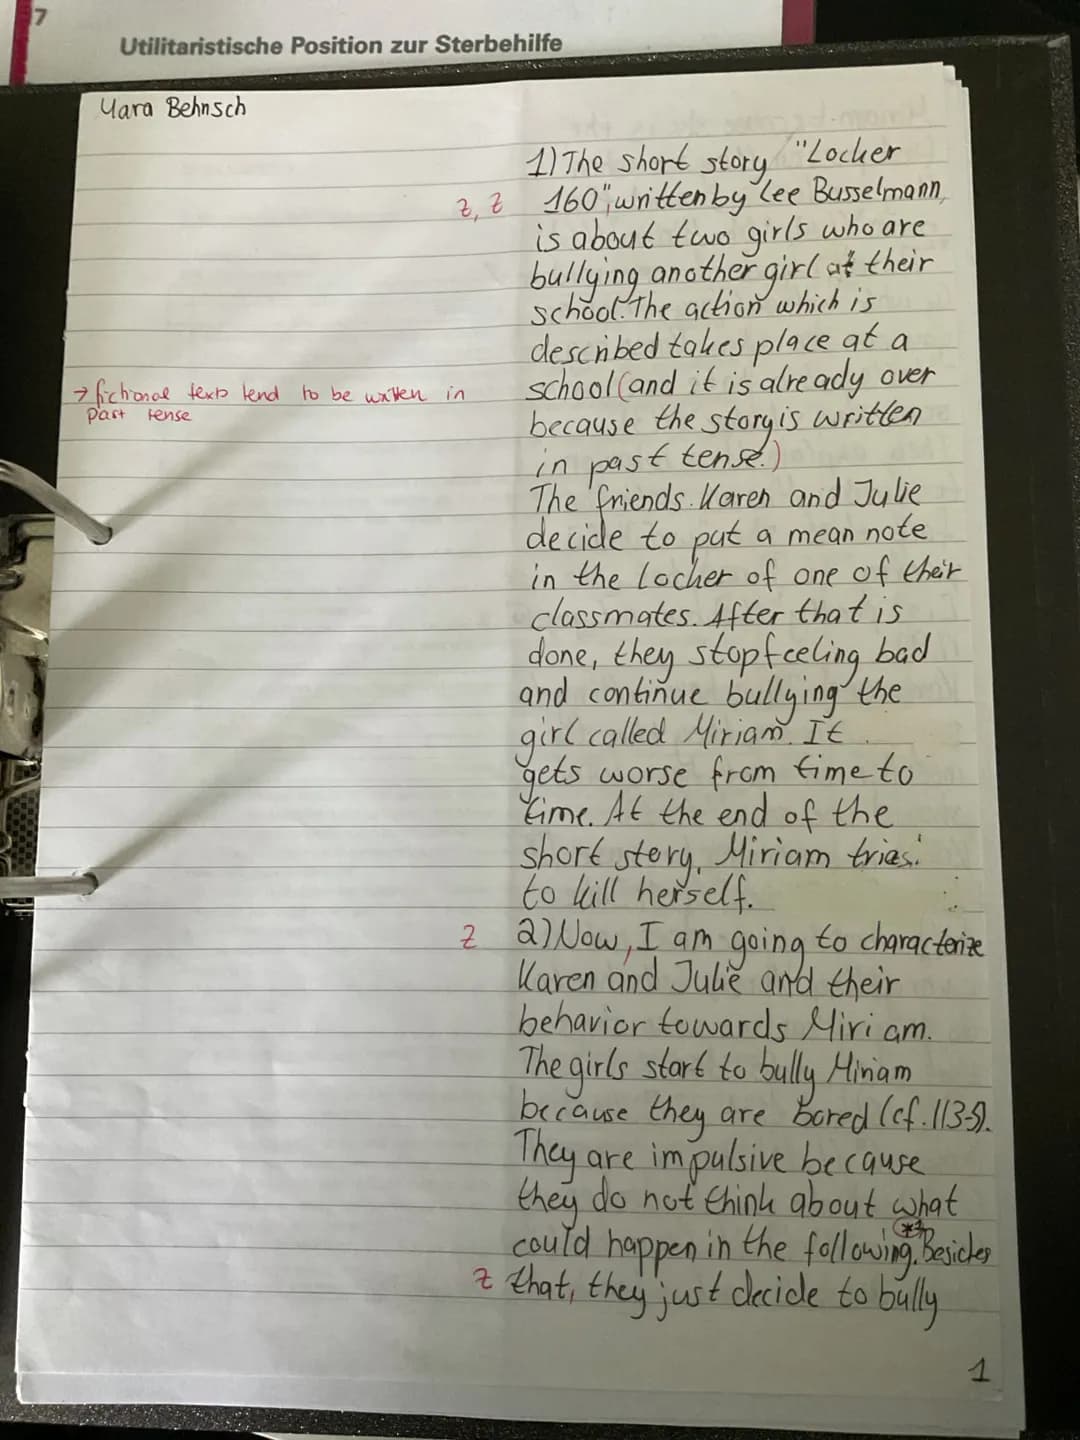 7
Utilitaristische Position zur Sterbehilfe
Yara Behnsch
1) The short story "Locker
z, z 160", written by Lee Busselmann,
is about two girls who are
bullying another girl at their
school. The action which is
described takes place at a
→ fictional texts tend to be written in
past tense
school (and it is already over
because the story is written
in past tense.)
The friends Karen and Julie
decide to put a mean note
in the locker of one of their
classmates. After that is
done, they stop feeling bad
and continue bullying the
girl called Miriam. It
gets worse from time to
time. At the end of the
short story, Miriam tries
to kill herself.
z 2) Now, I am going to characterize
Karen and Julie and their
behavior towards Miriam.
The girls start to bully Miriam
because they are bored (cf. ll 3-5).
They are impulsive because
they do not think about what
could happen in the following. Besides
z that, they just decide to bully
1